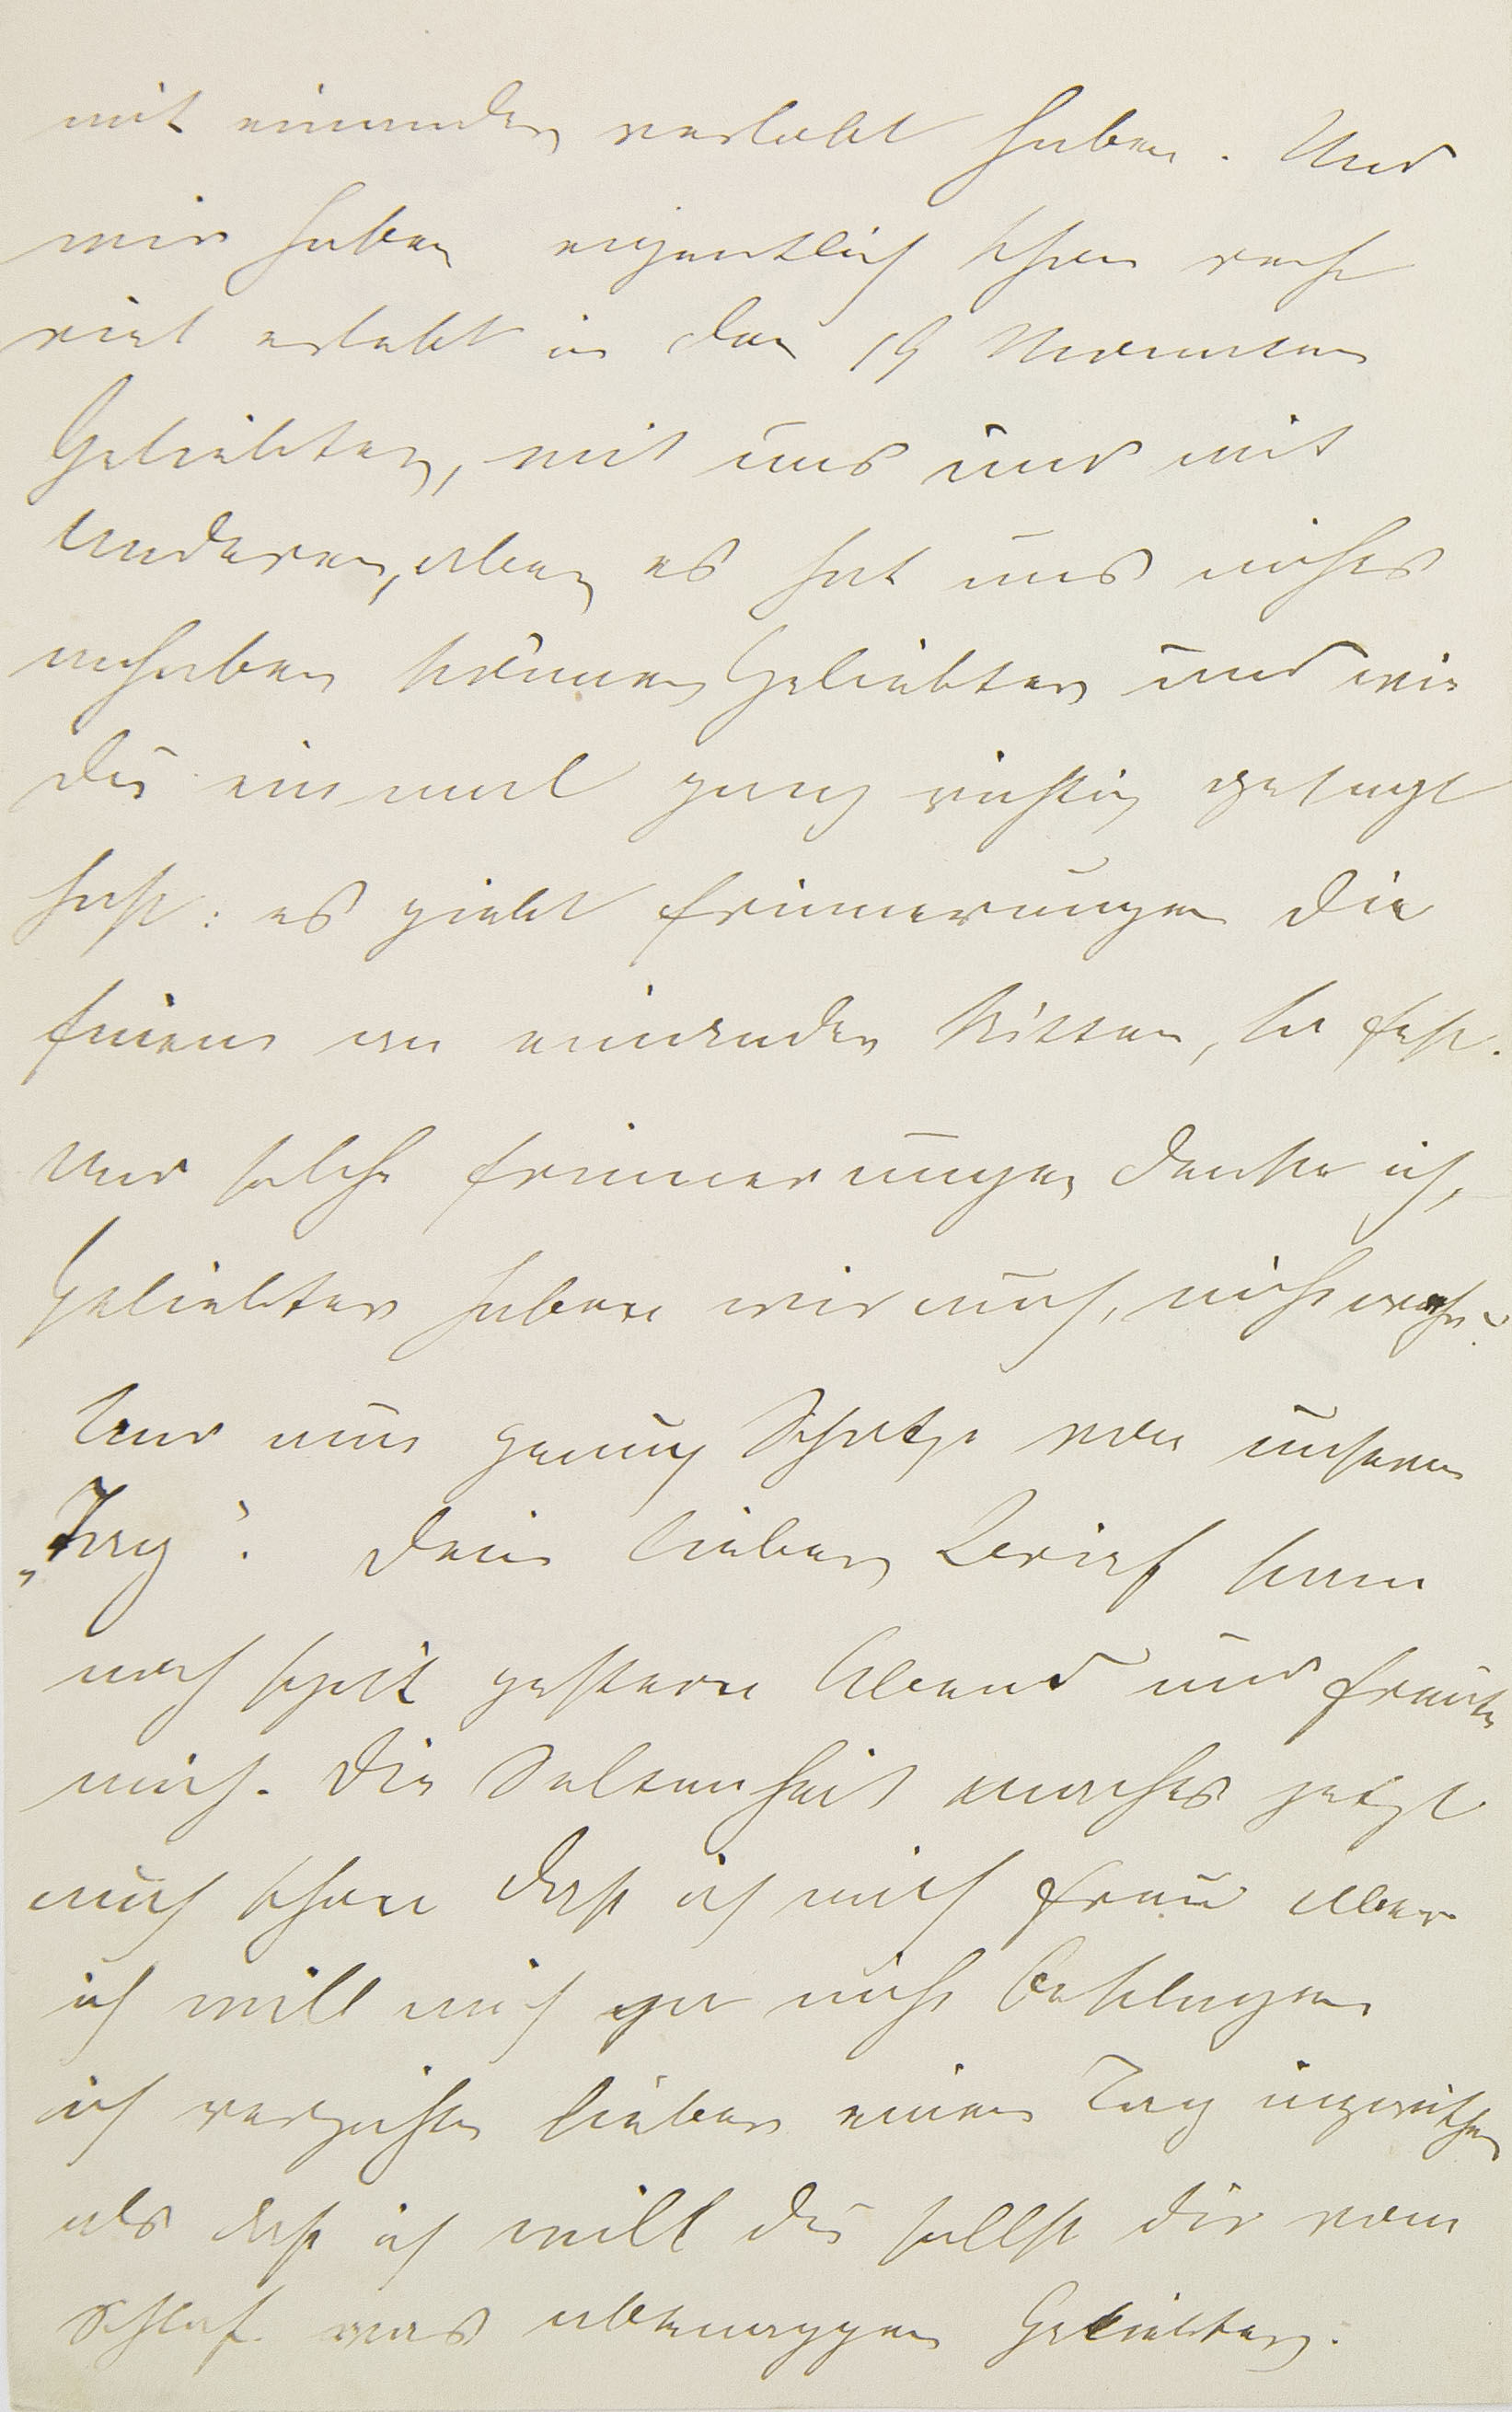 mit einander verlebt haben. Und
wir haben eigentlich schon recht
viel erlebt in den 19 Monaten
Geliebter, mit uns und mit
Anderen, aber es hat uns nichts
anhaben können Geliebter und wie
du einmal ganz richtig gesagt
hast: es giebt Erinnerungen die
Einen an einander kitten, so fest.
Und solche Erinnerungen denke ich,
Geliebter haben wir auch, nicht wahr?
Und nun genug Schatz von unserem
„Tag". Dein lieber Brief kam
noch spät gestern Abend und freute
mich. Die Seltenheit machts jetzt
auch schon daß ich mich freue aber
ich will mich gar nicht beklagen
ich verzichte lieber einen Tag inzwischen
als daß ich will du sollst dir vom
Schlaf was abzwaggen Geliebter.